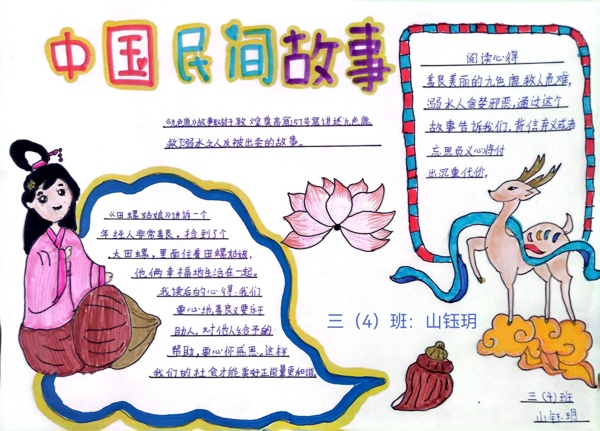 中国民间故事
《九色鹿》故事取材于敦煌莫高窟257号窟,讲述九色鹿
救了溺水之人反被出卖的故事。
阅读心得
善良美丽的九色鹿救人危难,
溺水人贪婪邪恶,通过这个
故事告诉我们,背信弃义或者
忘恩负义必将付
出沉重代价。
《田螺姑娘》讲诉一个
年轻人非常善良,捡到了个
大田螺,里面住着田螺姑娘,
他俩幸福地生活在一起。
我读后的心得:我们
要心地善良又要乐于
助人,对他人给予的
帮助,要心怀感恩。这样
我们的社会才能美好正能量更和谐
三(4)班:山钰玥
三(4)班
山钰玥